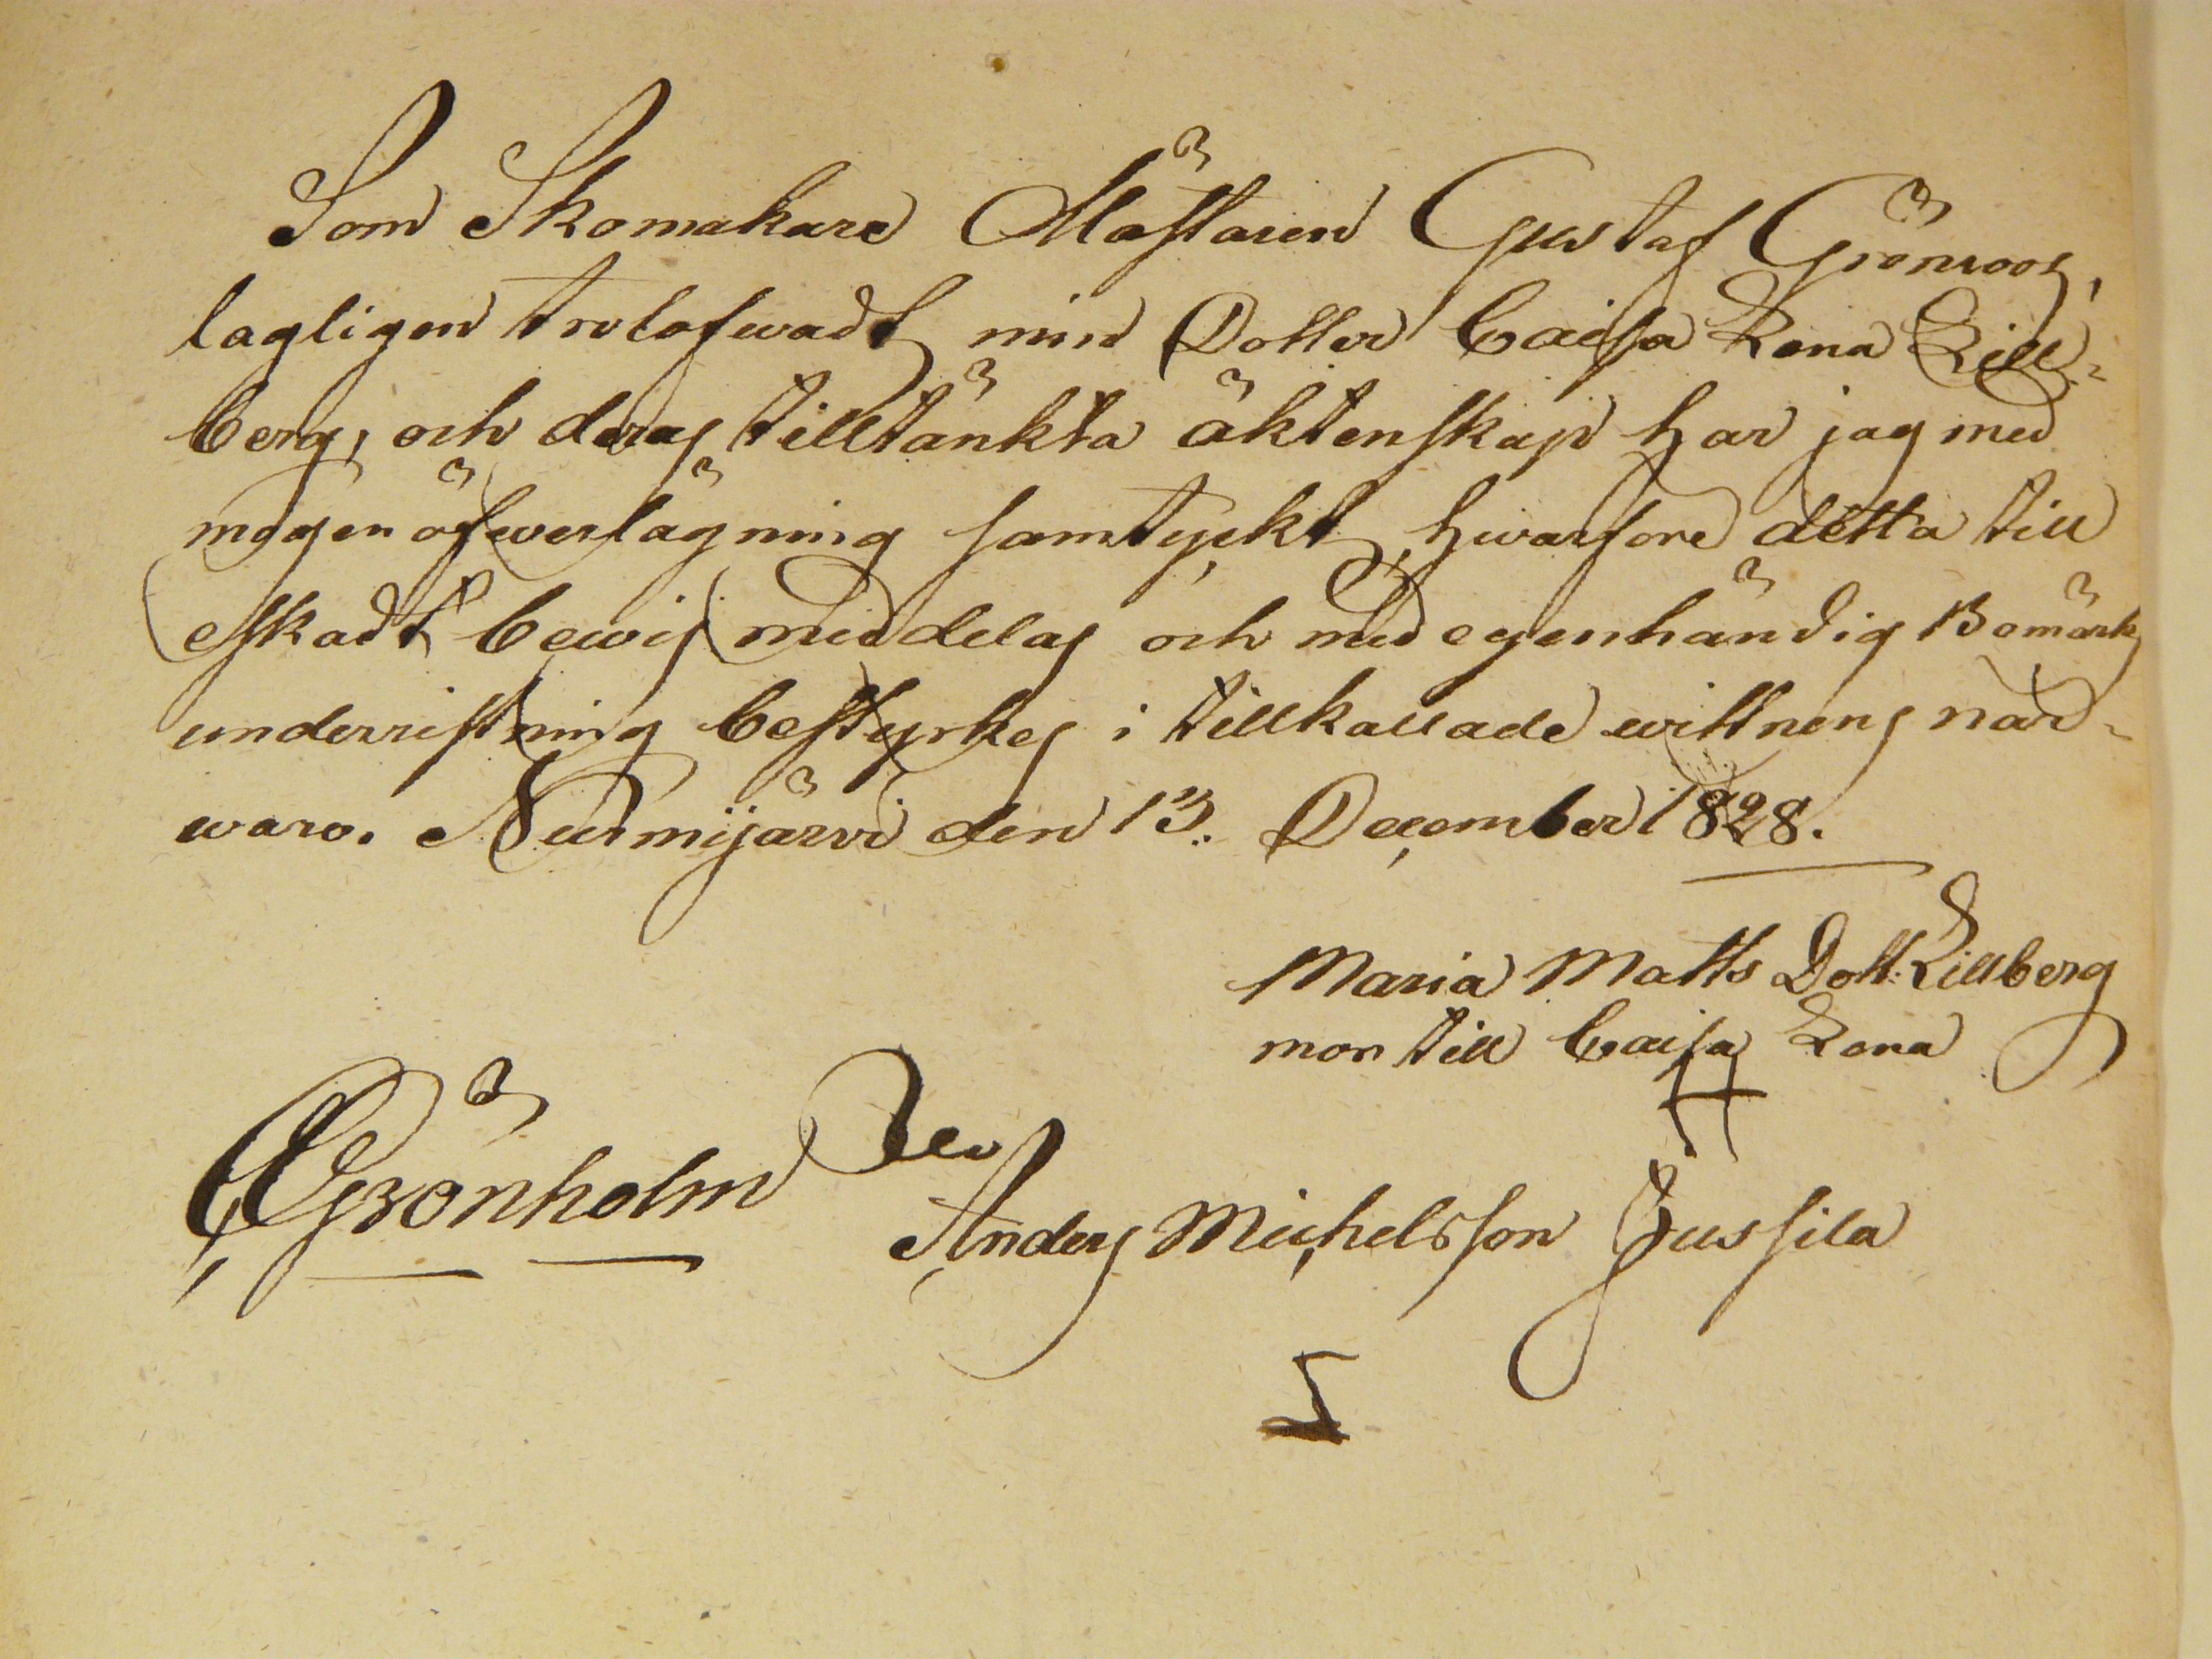 Som Skomakare Mästaren Gustaf Grönroos,
lagligen trolofwadt min Dotter Caisa Lena Lill-
berg, och deras tilltänkta äktenskap har jag med
mogen öfwerlägning samtyckt, hwarfore detta till
eskadt bewis meddelas och med egenhändig Bomärks
underristning bestyrkes i tillkallade wittnens när-
waro. Nurmijärvi den 13. December 1828.
Maria Matts Dott. Lillberg
mor till Caisa Lena
Grönholm
Anders Michelsson Jussila